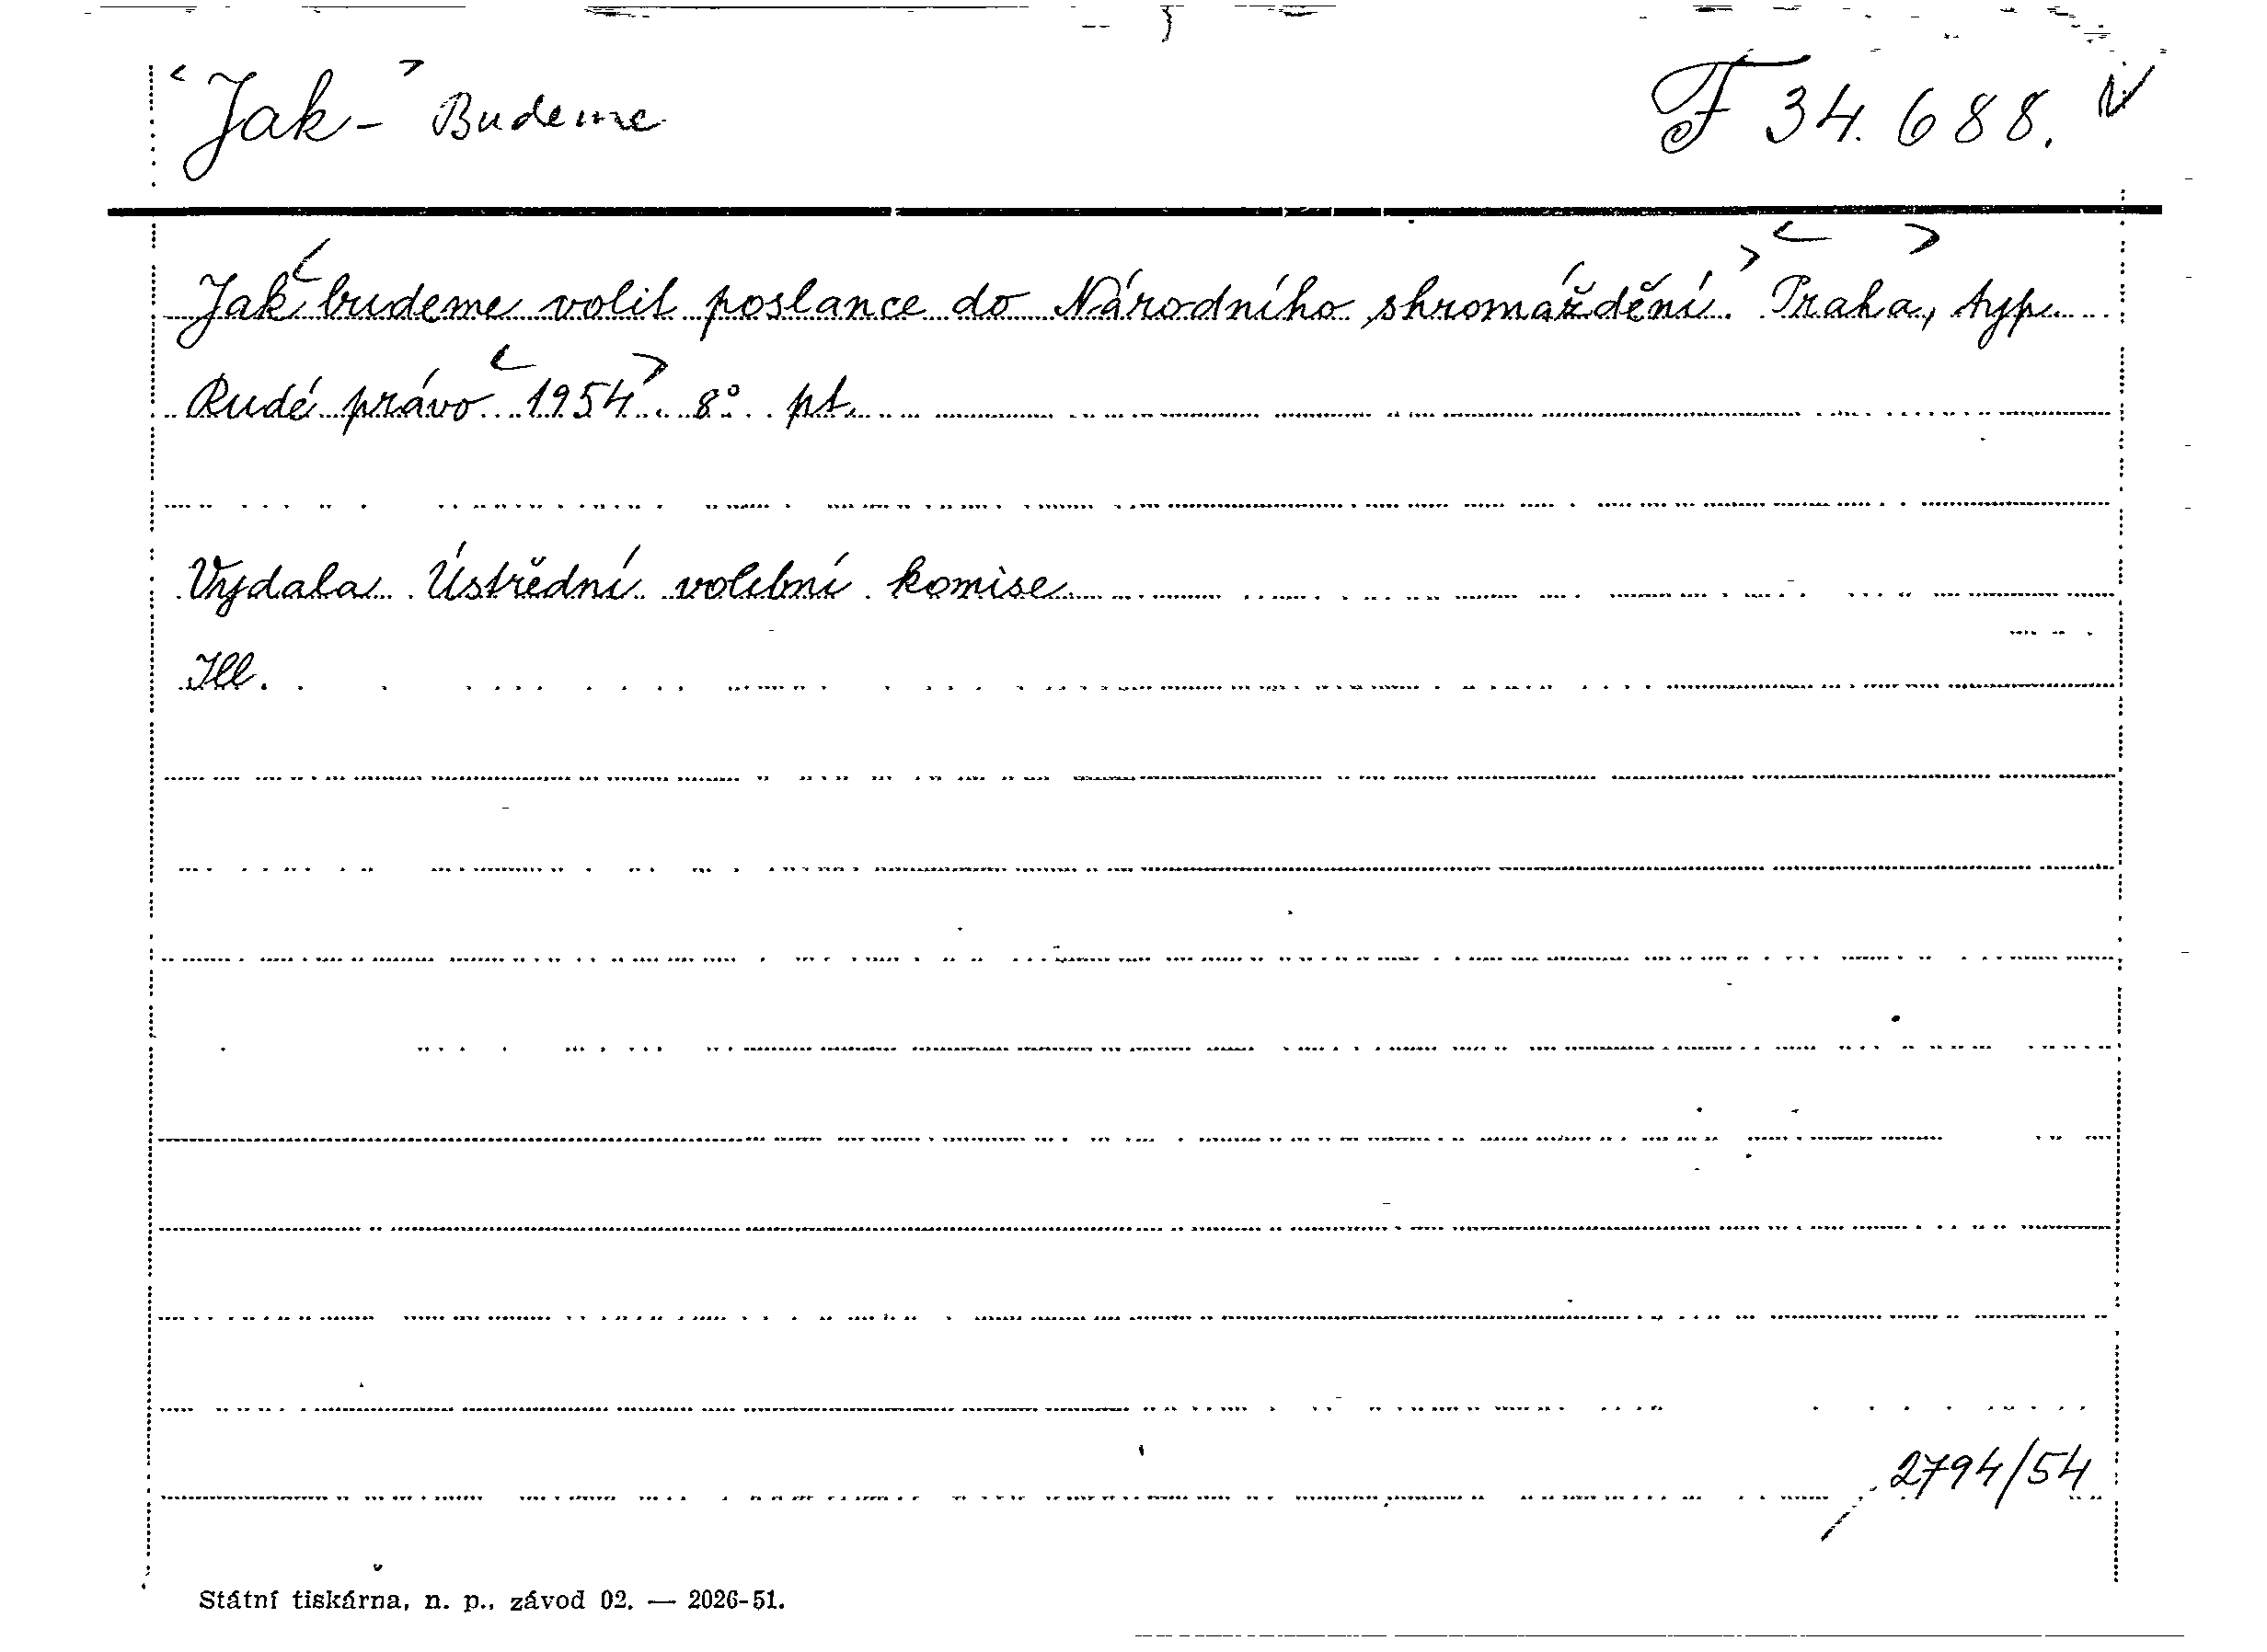 <Jak-> Budeme F 34.688.
Jak <budeme volit poslance do Národního shromáždění.> <Praha,> typ.
Rudé právo <1954>. 8° pt.
Vydala Ústřední volební komise
Ill.
2794/54
Státní tiskárna, n. p., závod 02. — 2026-51.